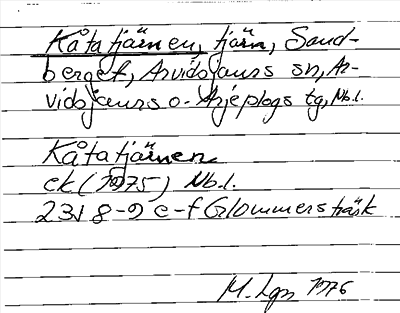 Kåtatjärnen, tjärn, Sand-
berget, Arvidsjaurs sn, Ar-
vidsjaurs o. Arjeplogs tg, Nb.l.
Kåtatjärnen
ek (1975) Nb.l.
23I 8-9 e-f Glommersträsk
M. Lgn 1976